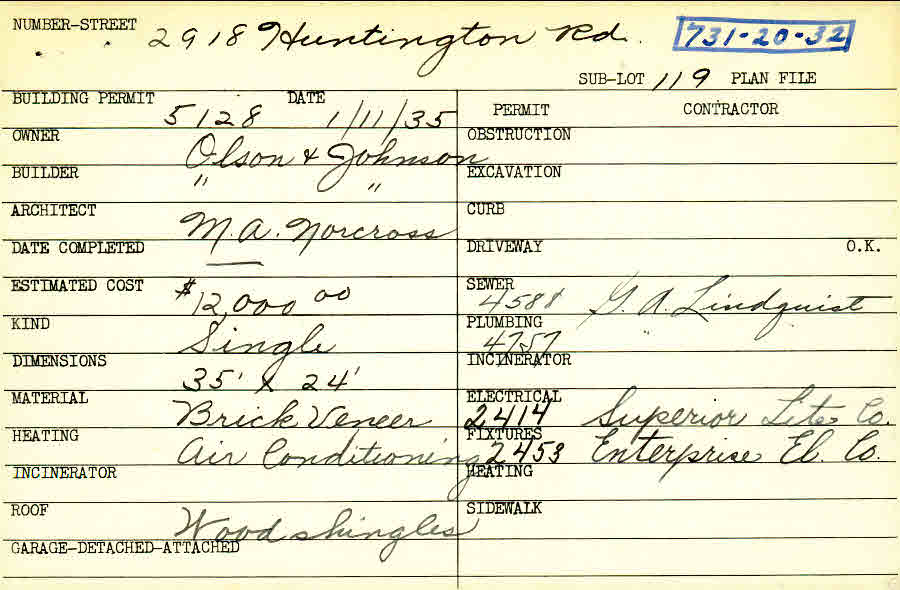 NUMBER-STREET 2918 Huntington Rd. 731-20-32
SUB-LOT 119 PLAN FILE
BUILDING PERMIT 5128 DATE 1/11/35 PERMIT CONTRACTOR
OWNER Olson & Johnson OBSTRUCTION
BUILDER " " EXCAVATION
ARCHITECT M. A. Norcross CURB
DATE COMPLETED — DRIVEWAY O.K.
ESTIMATED COST $12,000 00 SEWER 4588 G. A. Lindquist
KIND Single PLUMBING 4757 "
DIMENSIONS 35' x 24' INCINERATOR
MATERIAL Brick Veneer ELECTRICAL 2414 Superior Lite Co.
HEATING Air Conditioning FIXTURES 2453 Enterprise El. Co.
INCINERATOR HEATING
ROOF Wood shingles SIDEWALK
GARAGE-DETACHED-ATTACHED